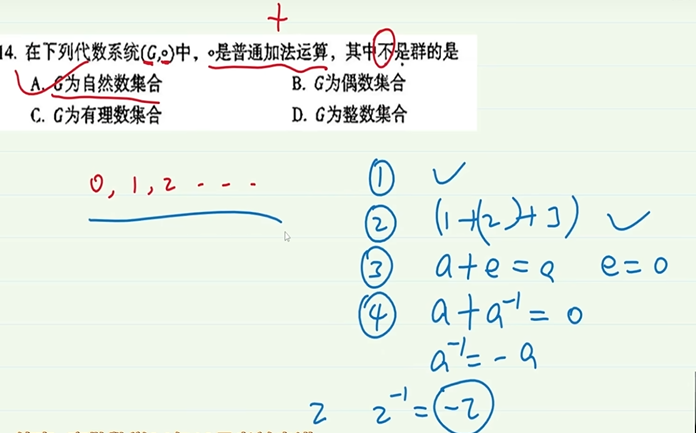 +
14. 在下列代数系统(G,∘)中，∘是普通加法运算，其中不是群的是
A. G为自然数集合 B. G为偶数集合
C. G为有理数集合 D. G为整数集合
0, 1, 2 - - -
① ✓
② (1+(2)+3) ✓
③ a+e=a e=0
④ a+a⁻¹=0
a⁻¹=-a
2 2⁻¹=-2